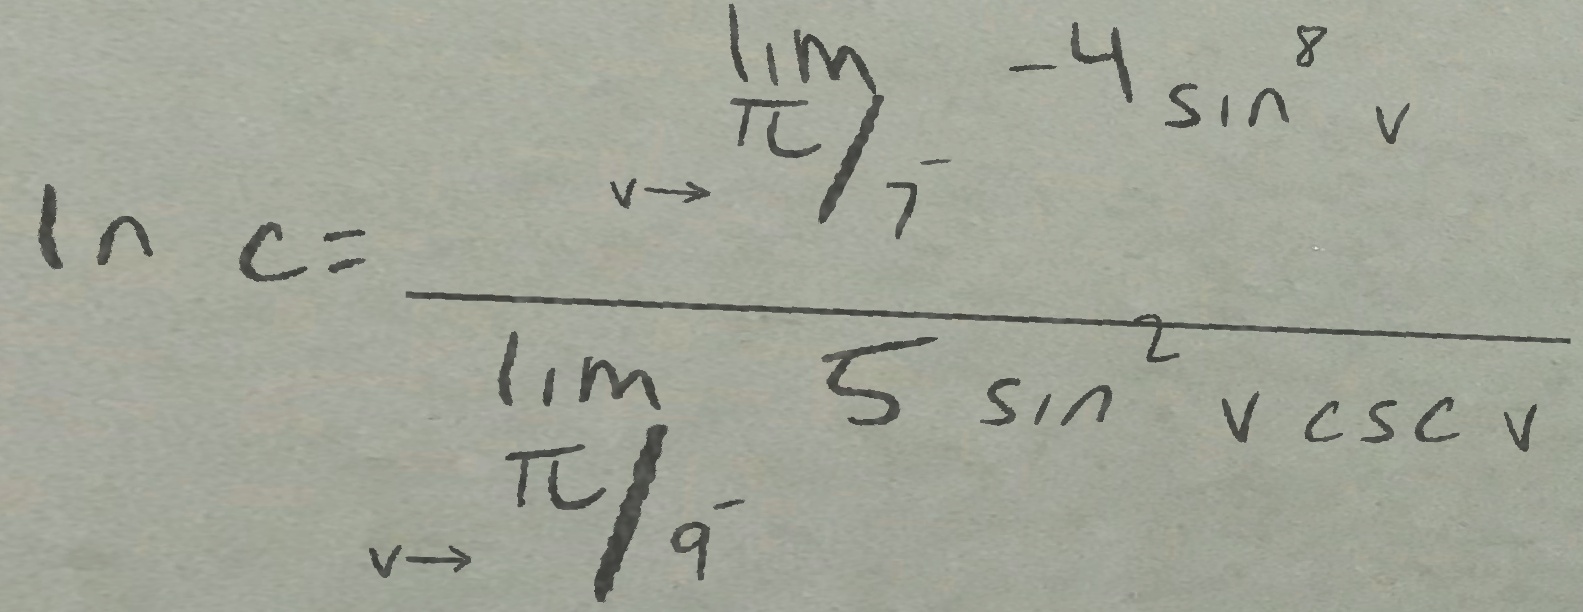 ln c = \frac{\lim_{v \to \pi/7^-} -4 \sin^8 v}{\lim_{v \to \pi/9^-} 5 \sin^2 v \csc v}